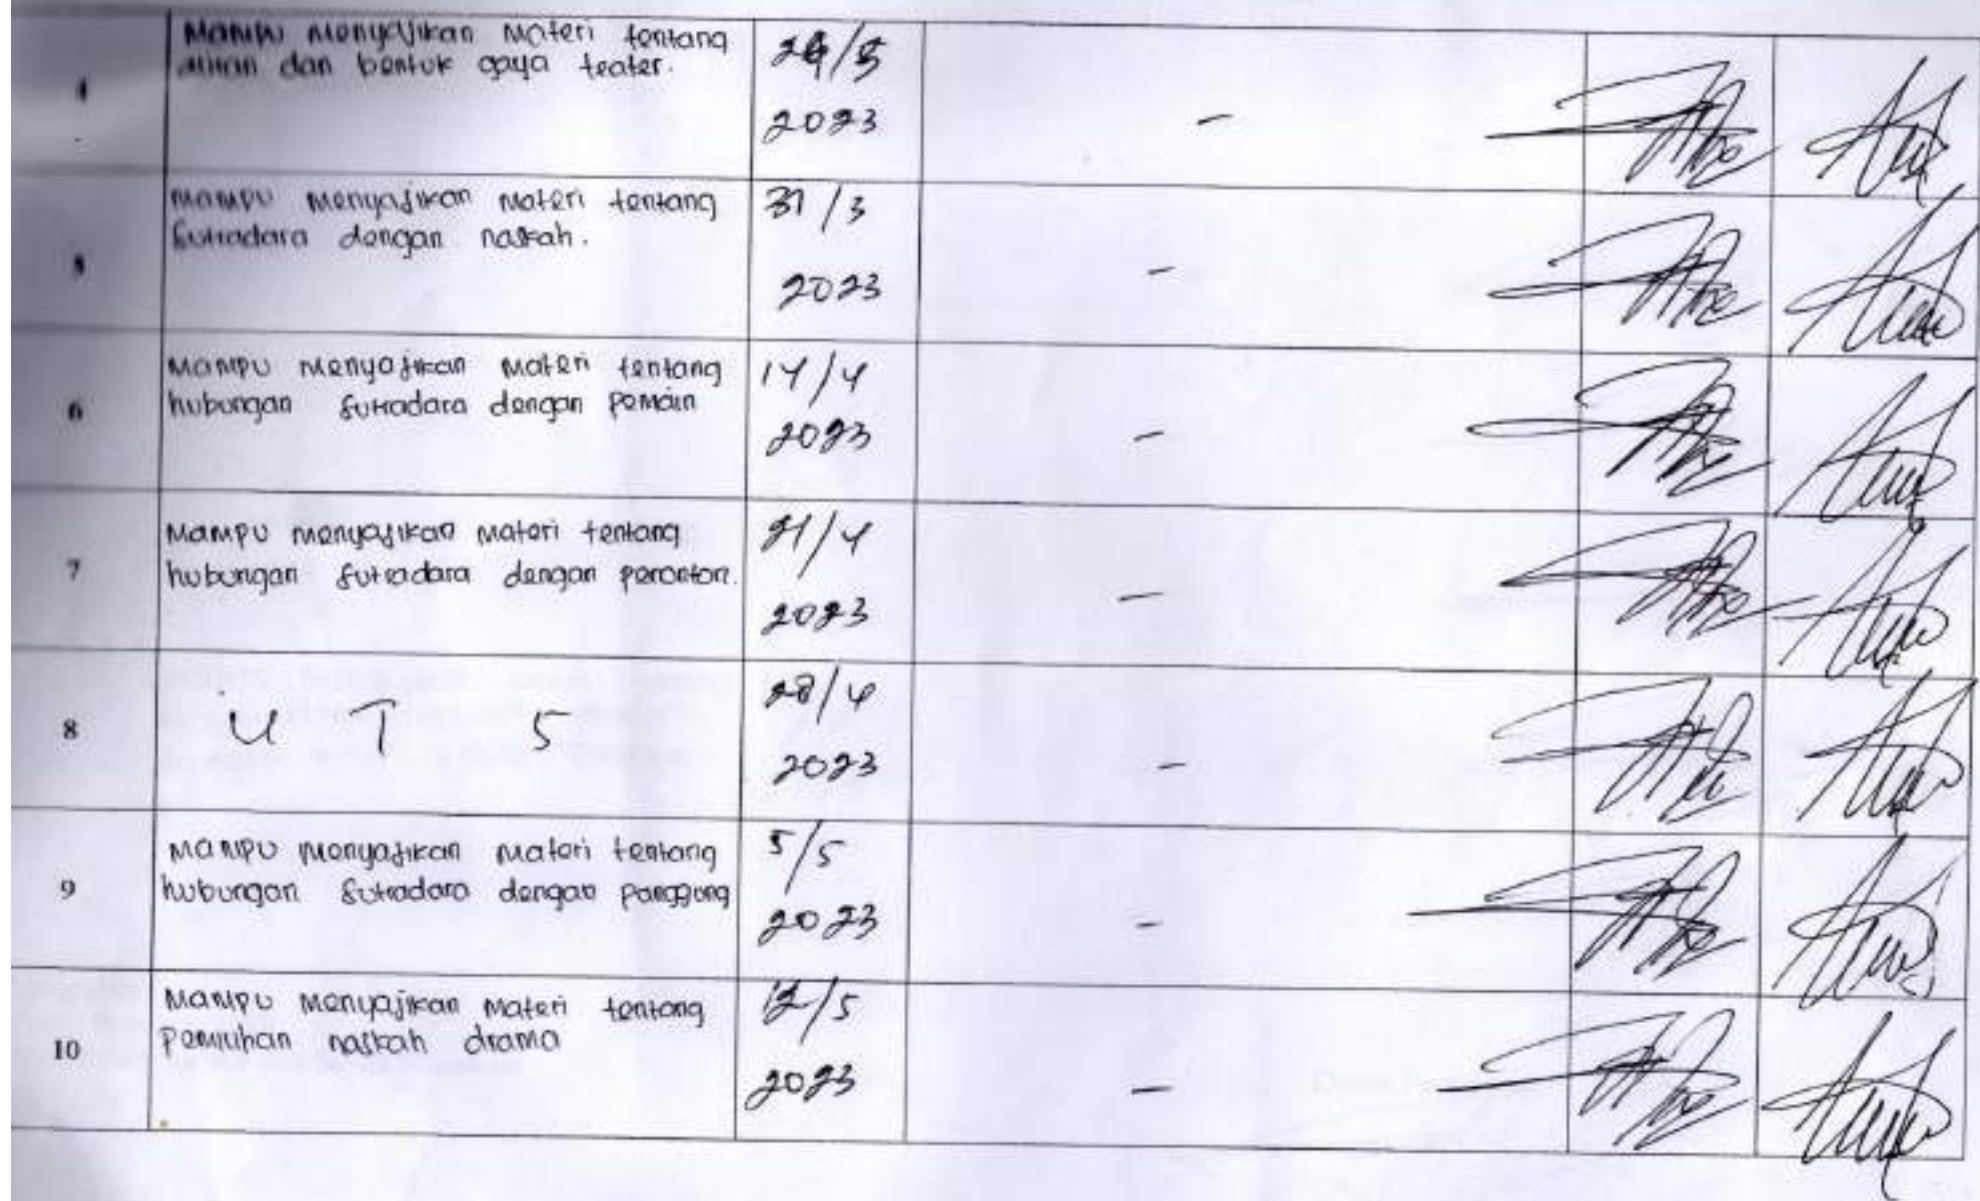 4
Mampu menyajikan materi tentang
aliran dan bentuk gaya teater.
24/3
2023
-
5
Mampu menyajikan materi tentang
sutradara dengan naskah.
31/3
2023
-
6
Mampu menyajikan materi tentang
hubungan sutradara dengan pemain
14/4
2023
-
7
Mampu menyajikan materi tentang
hubungan sutradara dengan penonton.
21/4
2023
-
8
U T S
28/4
2023
-
9
Mampu menyajikan materi tentang
hubungan sutradara dengan panggung
5/5
2023
-
10
Mampu menyajikan materi tentang
pemilihan naskah drama
12/5
2023
-